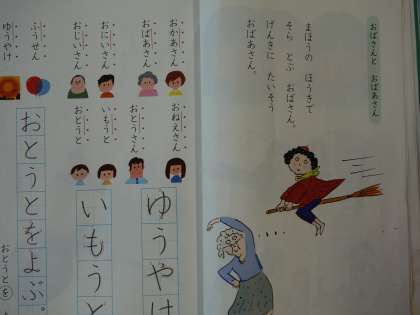 おばさんと おばあさん
まほうの ほうきで
そら とぶ おばさん。
げんきに たいそう
おばあさん。
おかあさん
おばあさん
おにいさん
おじいさん
ふうせん
ゆうやけ
おねえさん
おとうさん
いもうと
おとうと
ゆうやけ
いもうと
おとうとをよぶ。
おとうとを